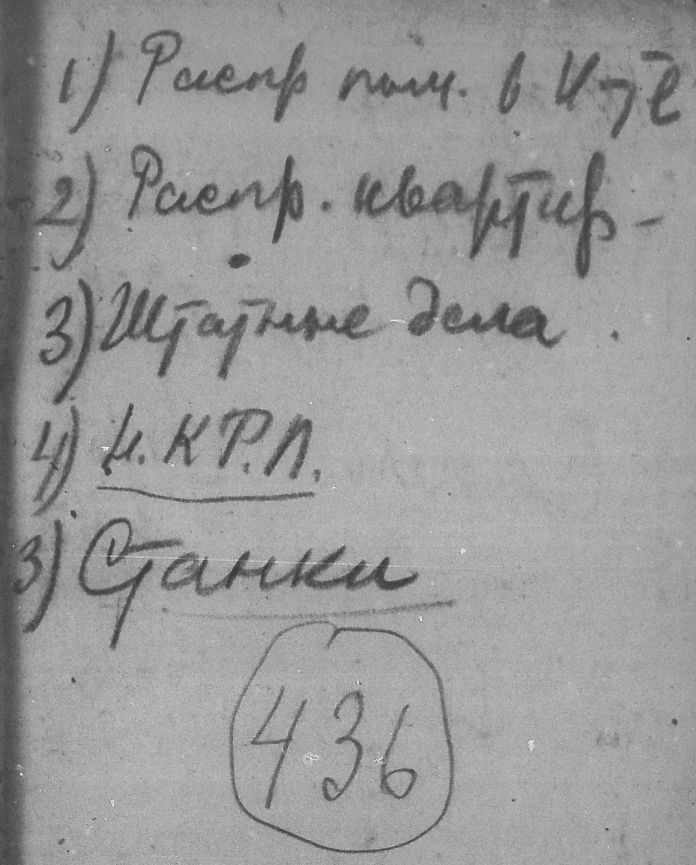 1) Распр пом. в И-те
2) Распр. квартир -
3) Штатные дела.
4) И. К Р. Л.
3) Станки
436